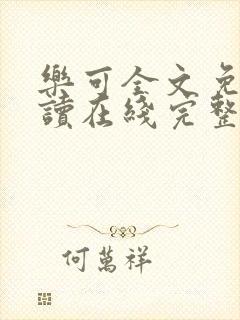 樂可全文免
讀在綫完整
何萬祥